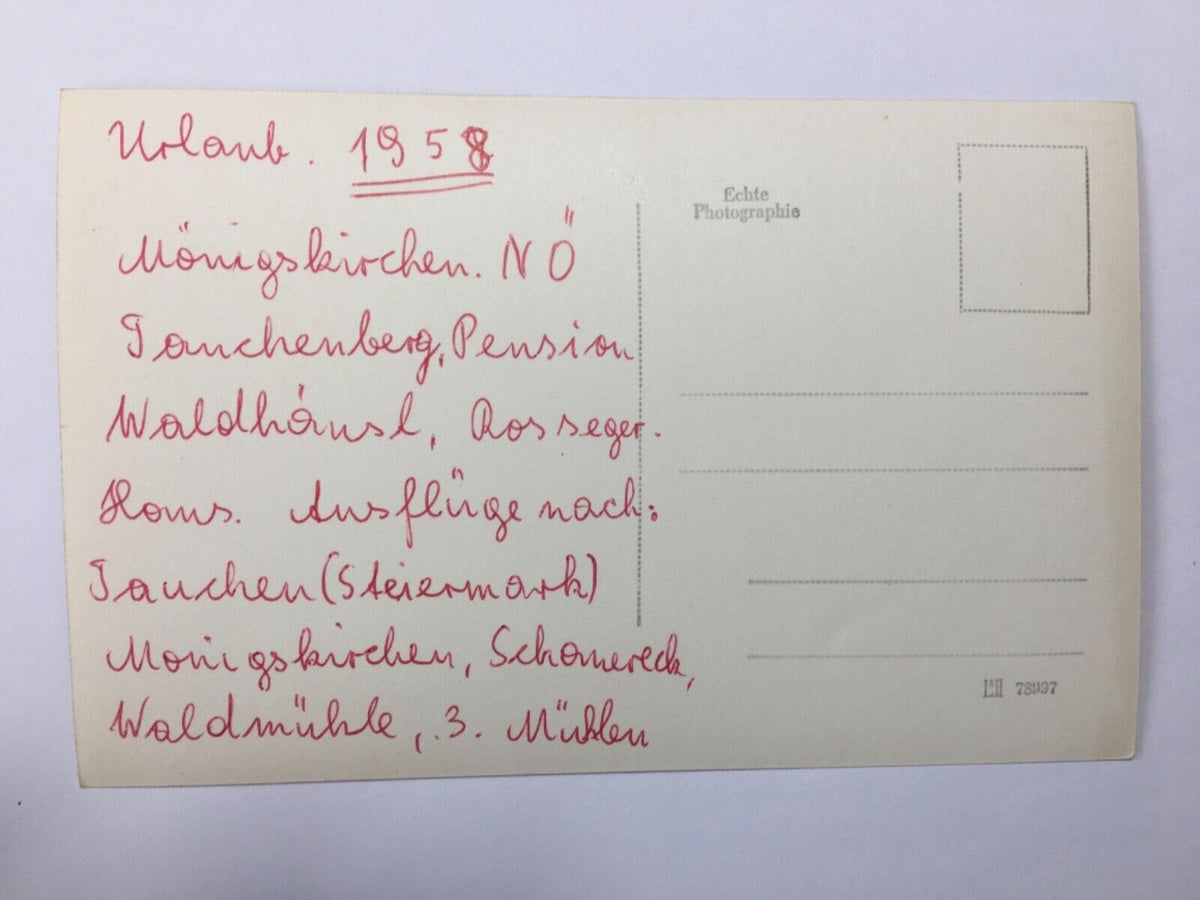 Urlaub. 1958
Mönigskirchen. NÖ
Tauchenberg, Pension
Waldhäusl, Rosseger-
Haus. Ausflüge nach:
Tauchen (Steiermark)
Mönigskirchen, Schauereck,
Waldmühle, 3. Mühlen
Echte
Photographie
78937